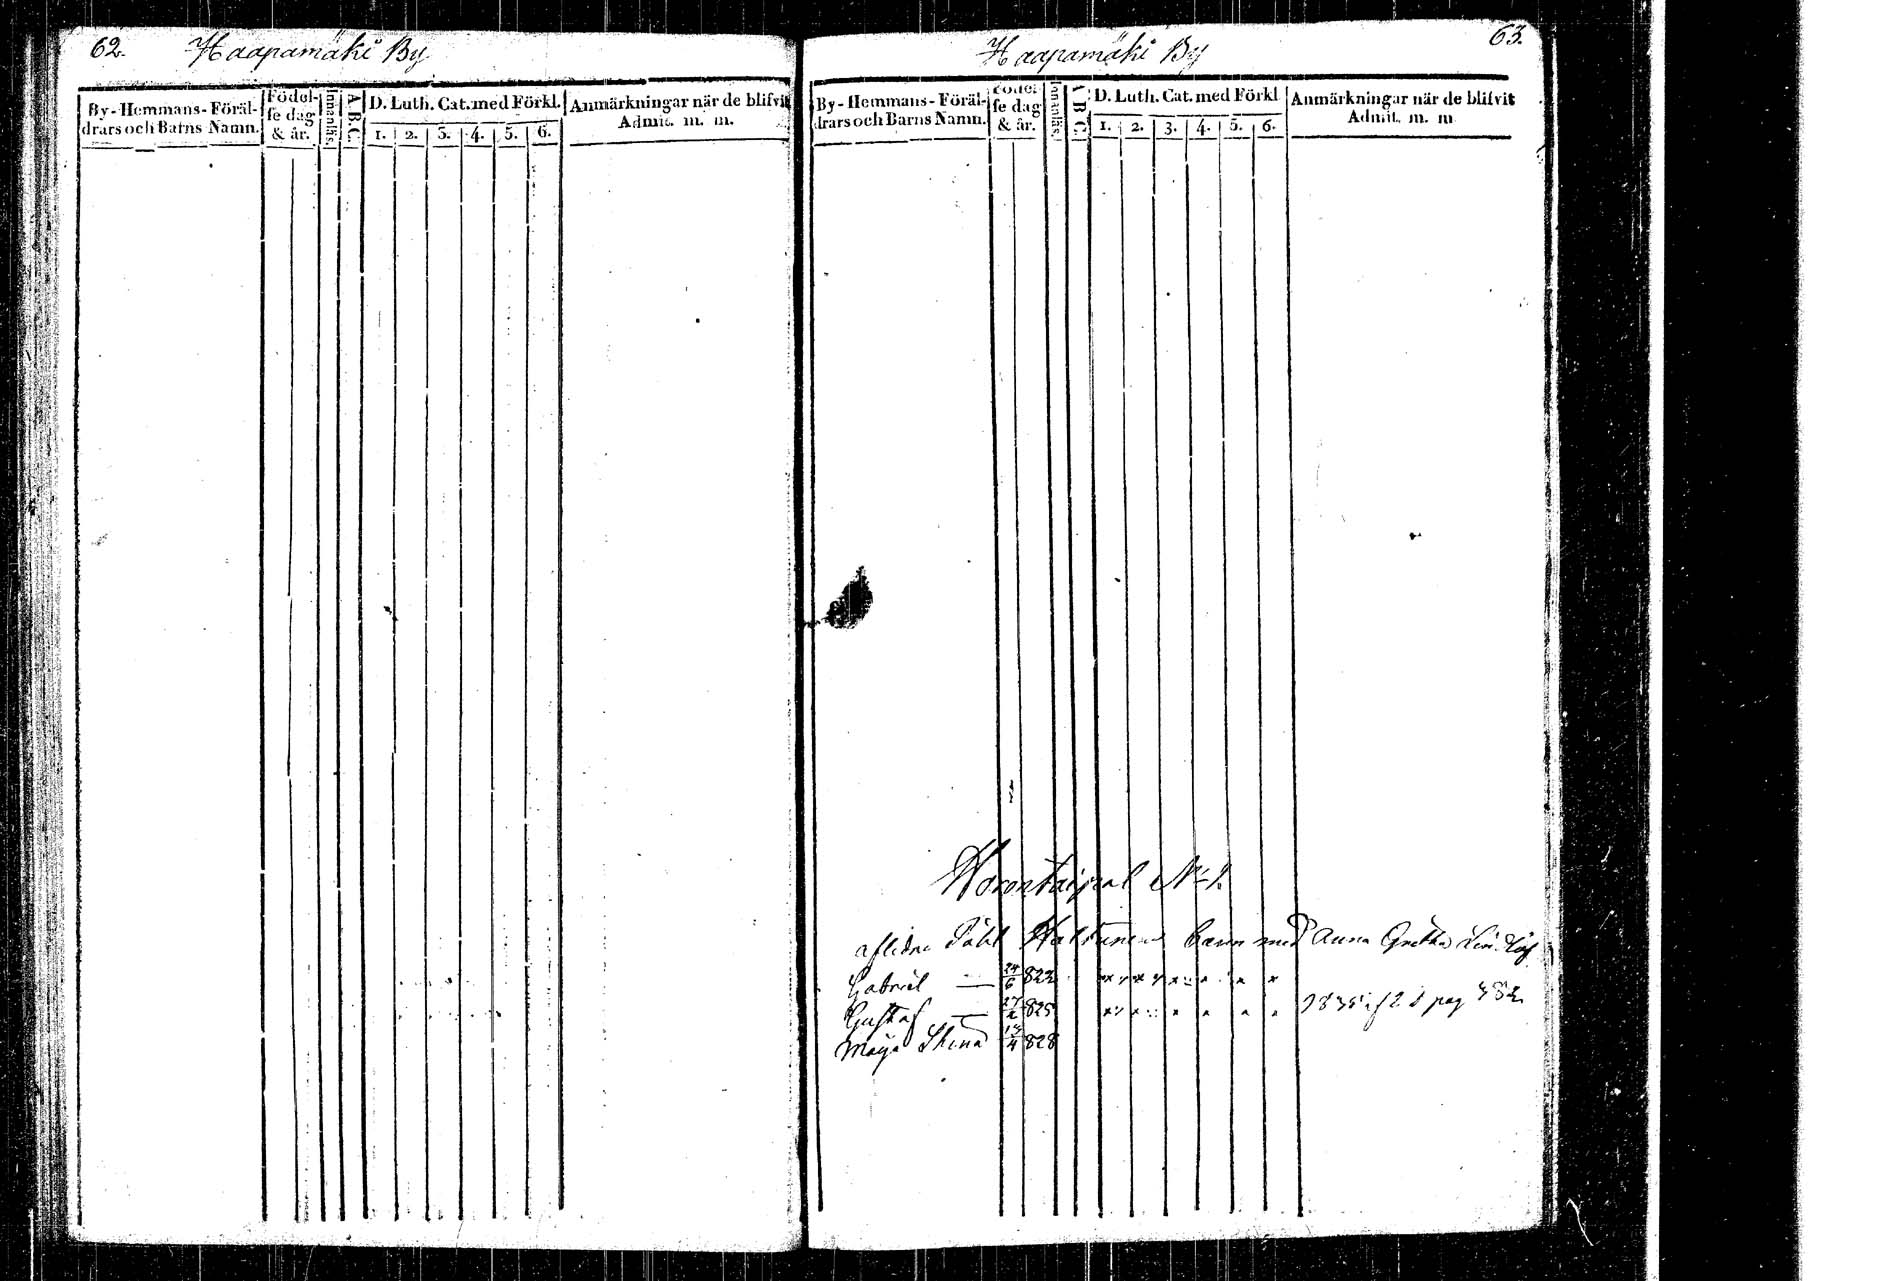 62. Haapamäki By
By-Hemmans-Föräl-
drars och Barns Namn.
Födel-
se dag
& år.
Innanläs.
A B C.
D. Luth. Cat. med Förkl.
1. 2. 3. 4. 5. 6.
Anmärkningar när de blifvit
Admit. m. m.
Haapamäki By 63.
By-Hemmans-Föräl-
drars och Barns Namn.
Födel-
se dag
& år.
Innanläs.
A B C.
D. Luth. Cat. med Förkl
1. 2. 3. 4. 5. 6.
Anmärkningar när de blifvit
Admit. m. m
No 2.
aflidne Påhl barn med Anna Gretha
Gabriel — 24/6 822
Gustaf — 27/2 825 pag 382
Maja Stina 13/4 828